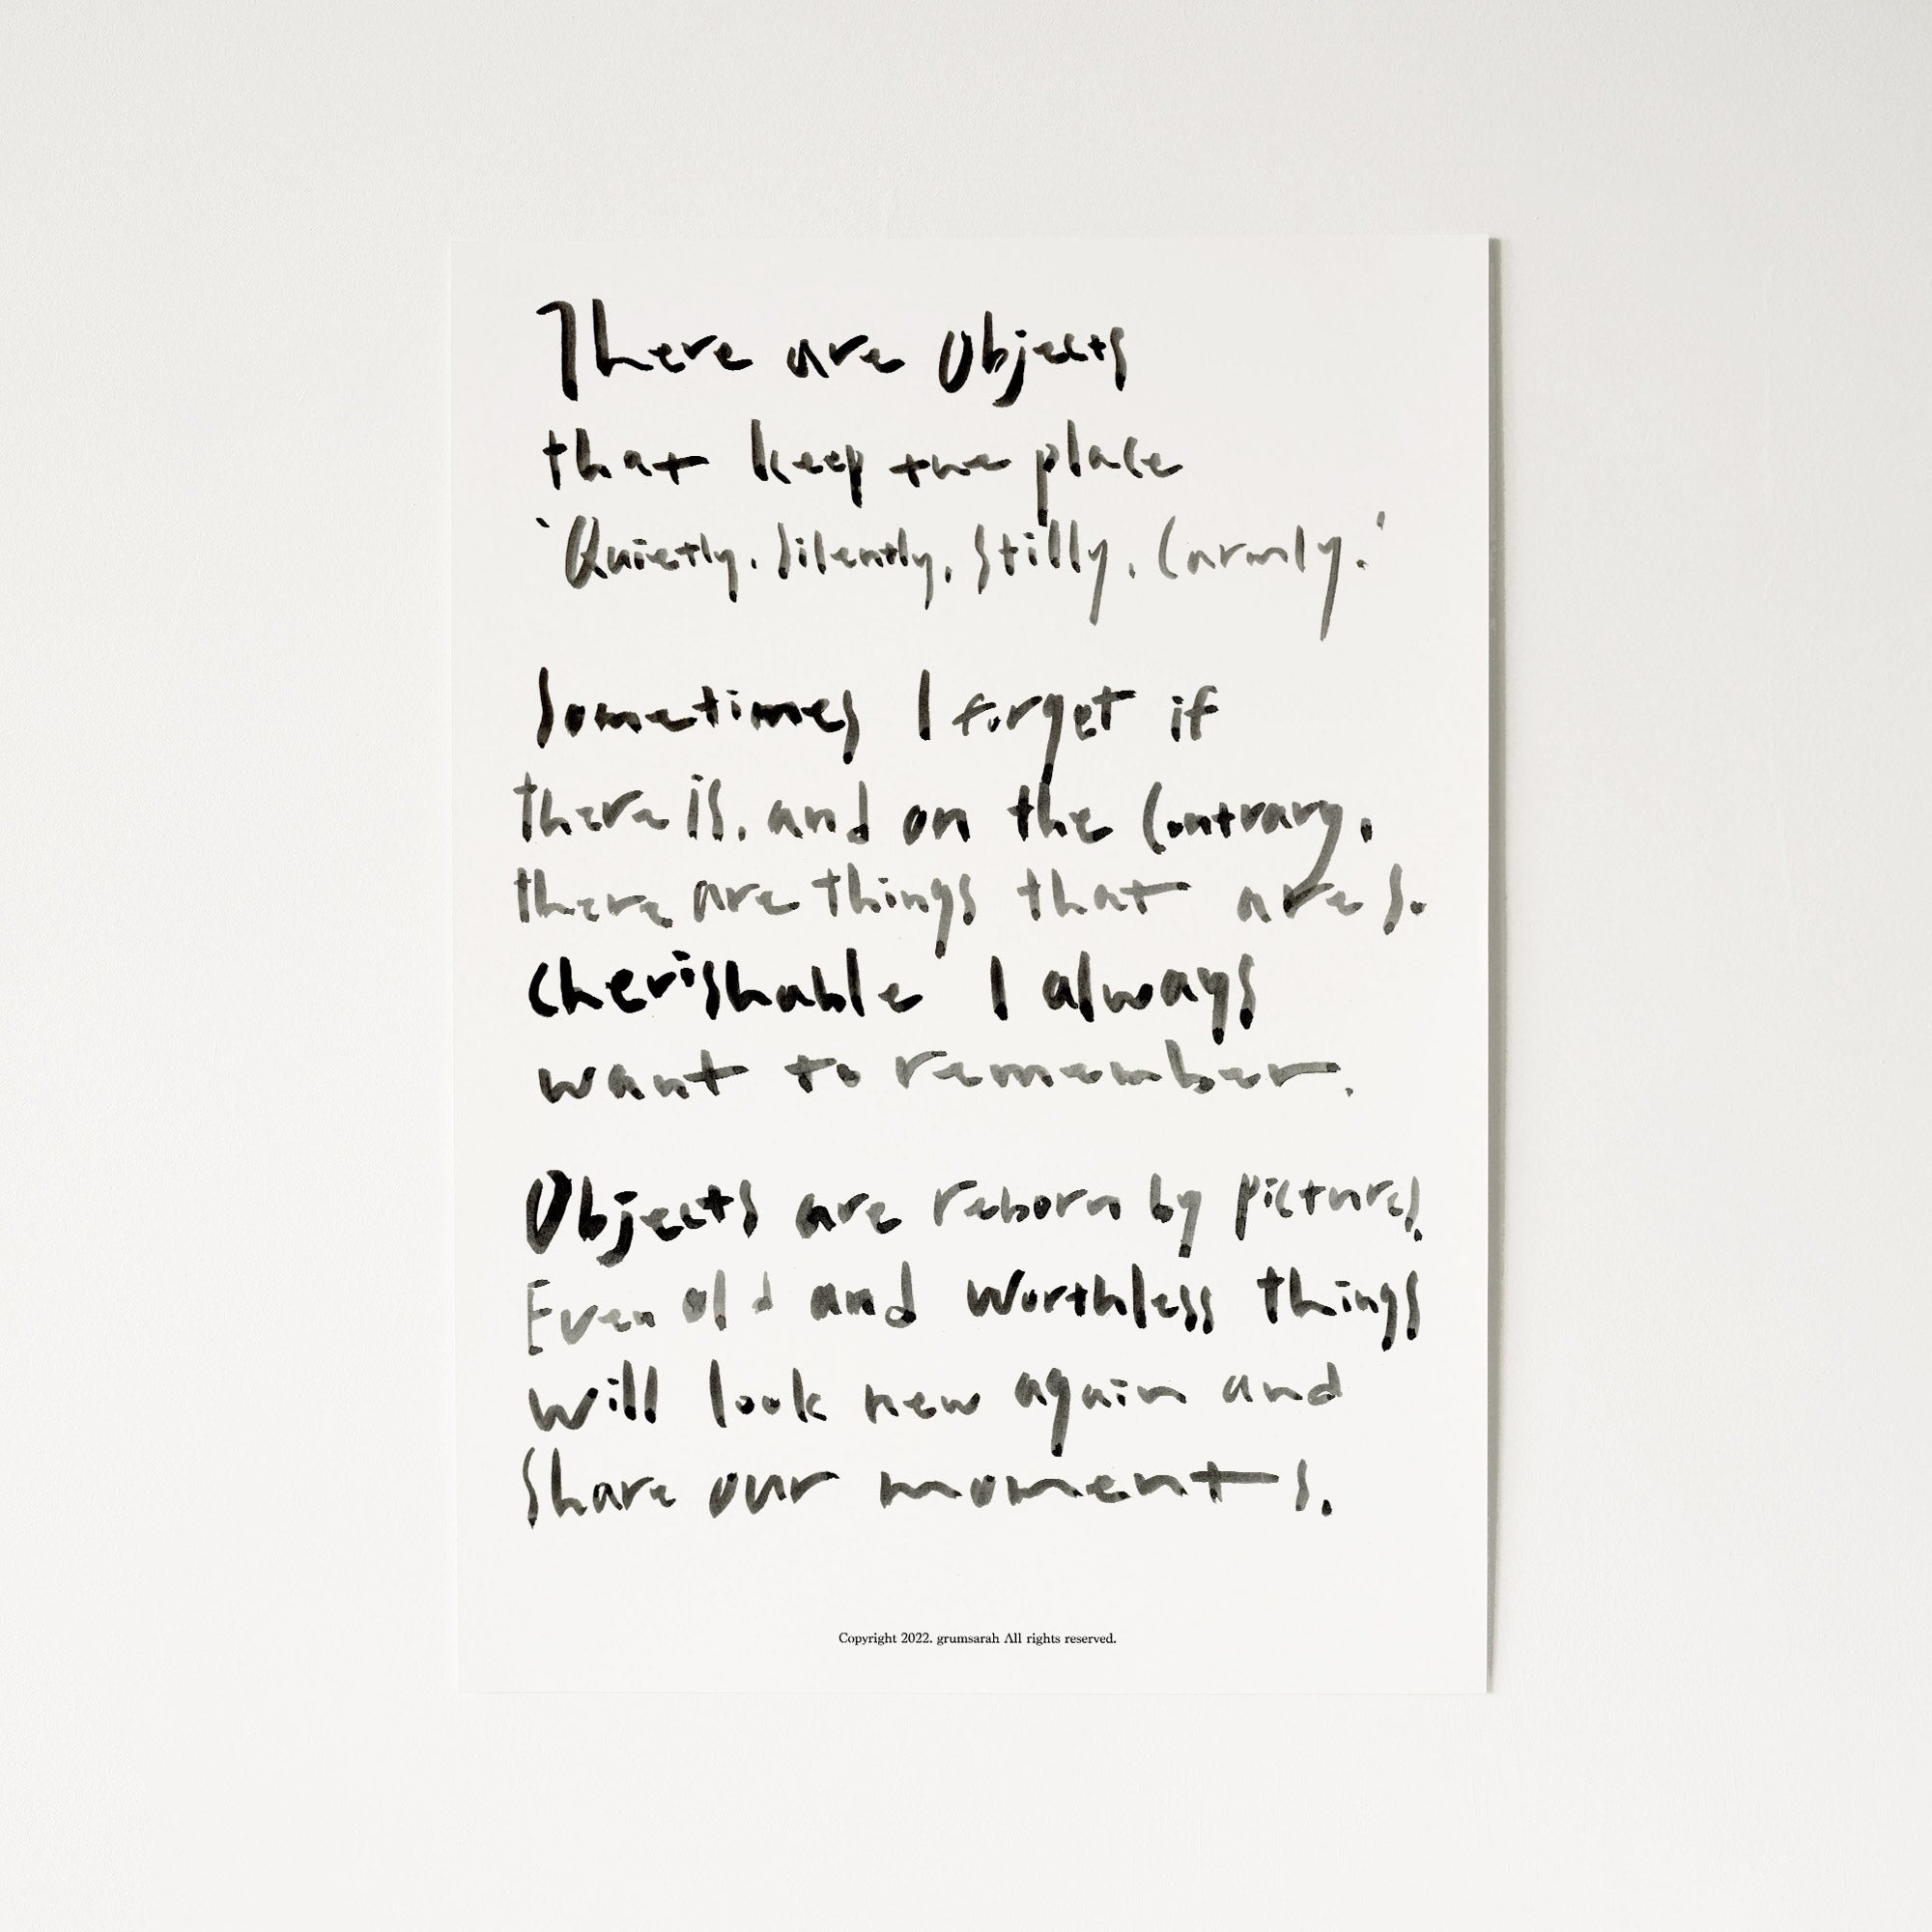 There are Objects
that keep the place
'Quietly. Silently. Stilly. Carmly.'
Sometimes I forget if
there is. and on the Contrary.
there are things that are so
cherishable I always
want to remember.
Objects are reborn by pictures.
Even old and worthless things
will look new again and
Share our moments.
Copyright 2022. grumsarah All rights reserved.